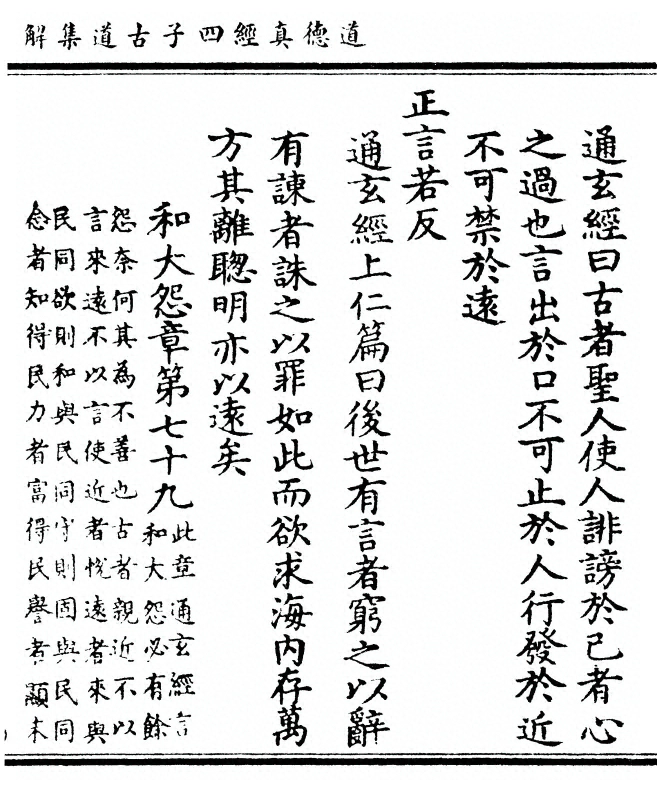 道德真經四子古道集解
通玄經曰古者聖人使人誹謗於己者心
之過也言出於口不可止於人行發於近
不可禁於遠
正言若反
通玄經上仁篇曰後世有言者窮之以辭
有諫者誅之以罪如此而欲求海内存萬
方其離聰明亦以遠矣
和大怨章第七十九
此章通玄經言
和大怨必有餘
怨奈何其為不善也古者親近不以
言來遠不以言使近者悅遠者來與
民同欲則和與民同守則固與民同
念者知得民力者富得民譽者顯未